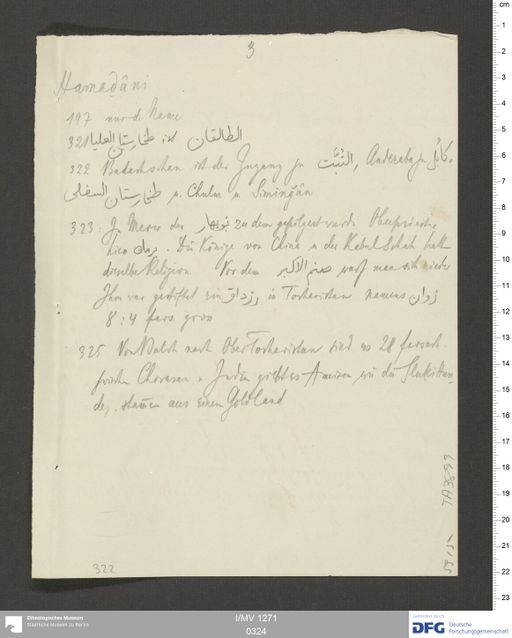 3
Hamaḏâni
197 nur d. Name
321 طخارستان العليا ist الطالقان
322 Badachschan ist der Zugang zu التُبَّت, Anderaba zu كابُل.
طخارستان السفلى u. Chulm u Siminǧân
323: In Merw der نوبهار zu dem gepilgert wurde Oberpriester
hiess برمك. Die Könige von China u der Kabul Schah hatt
dieselbe Religion. Vor dem صنم الاكبر warf man sich nieder
Ihm war gestiftet ein رزداق in Tocharistan namens زوان
8 : 4 fars. gross
325 Von Balch nach Ober Tocharistan sind es 28 farsach.
zwischen Chorasan u. Indien giebt es Ameisen wie die
de, stamen aus einem Goldland
322
TA 3099
cm
1
2
3
4
5
6
7
8
9
10
11
12
13
14
15
16
17
18
19
20
21
22
23
Ethnologisches Museum
Staatliche Museen zu Berlin
I/MV 1271
0324
Gefördert durch
DFG Deutsche
Forschungsgemeinschaft